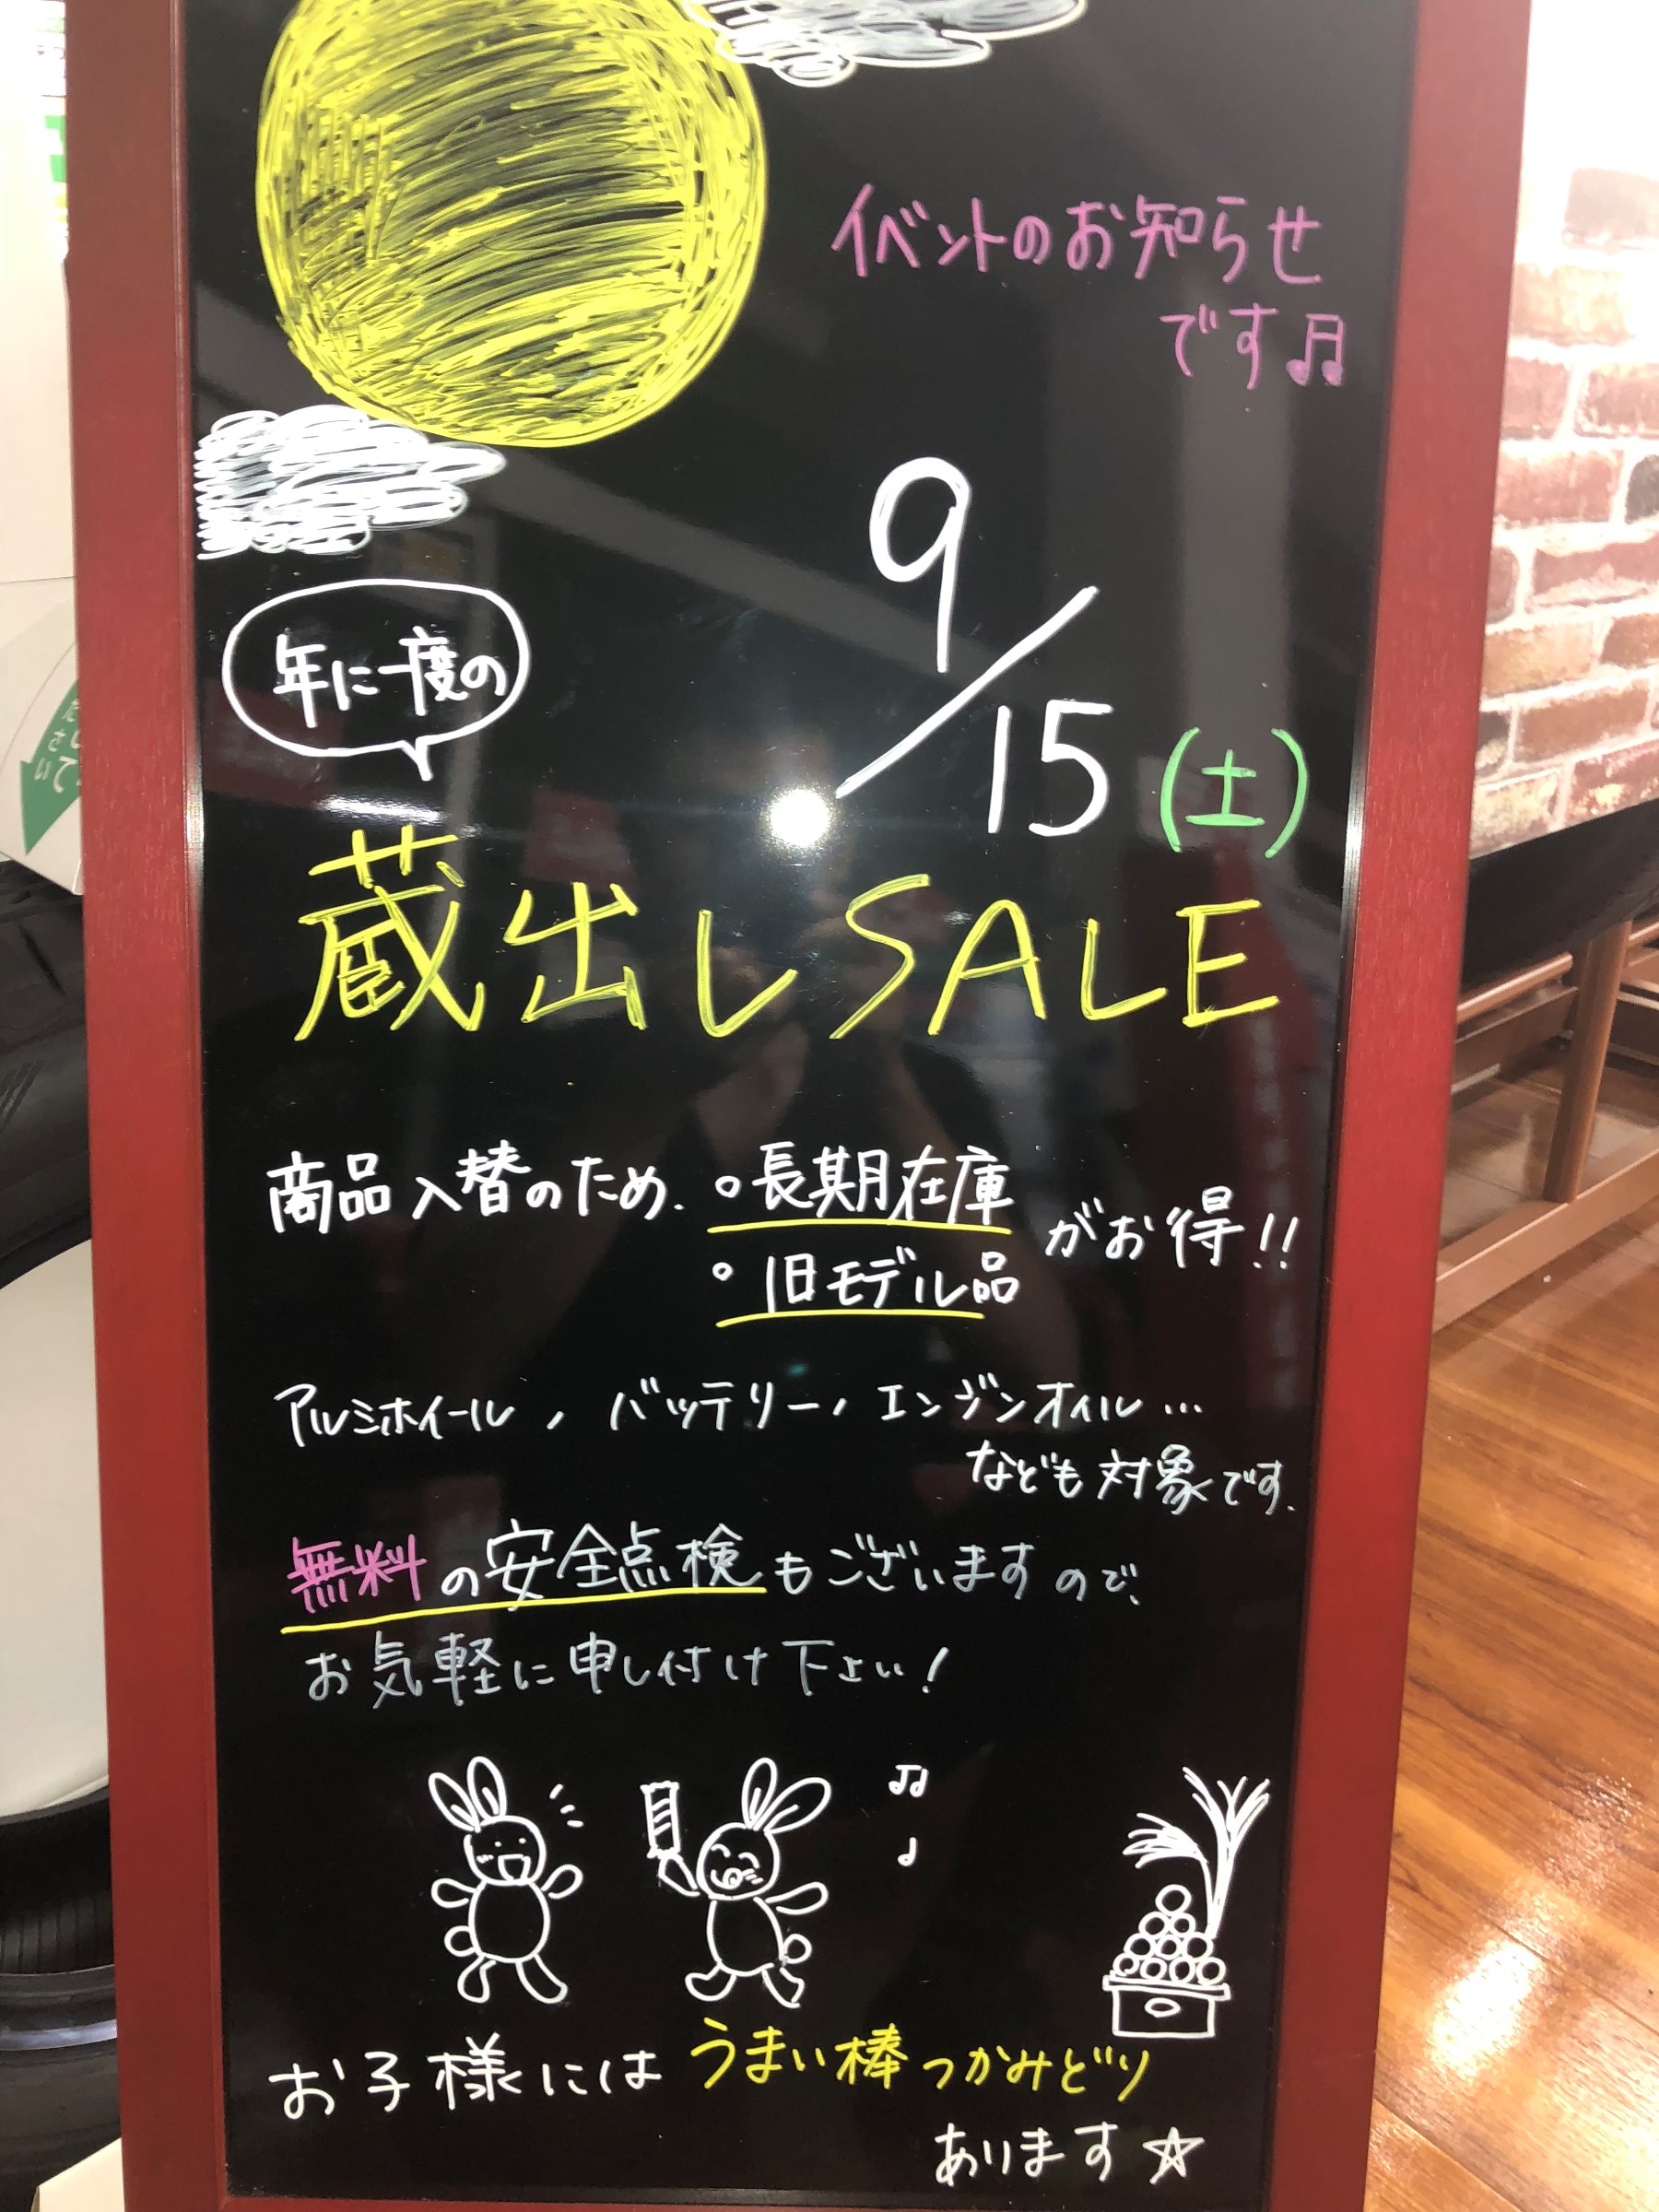 イベントのお知らせ
です♫
9/15(土)
年に一度の
蔵出しSALE
商品入替のため、
◦長期在庫
◦旧モデル品
がお得!!
アルミホイール、バッテリー、エンジンオイル…
なども対象です。
無料の安全点検もございますので、
お気軽に申し付け下さい!
お子様にはうまい棒つかみどり
あります☆